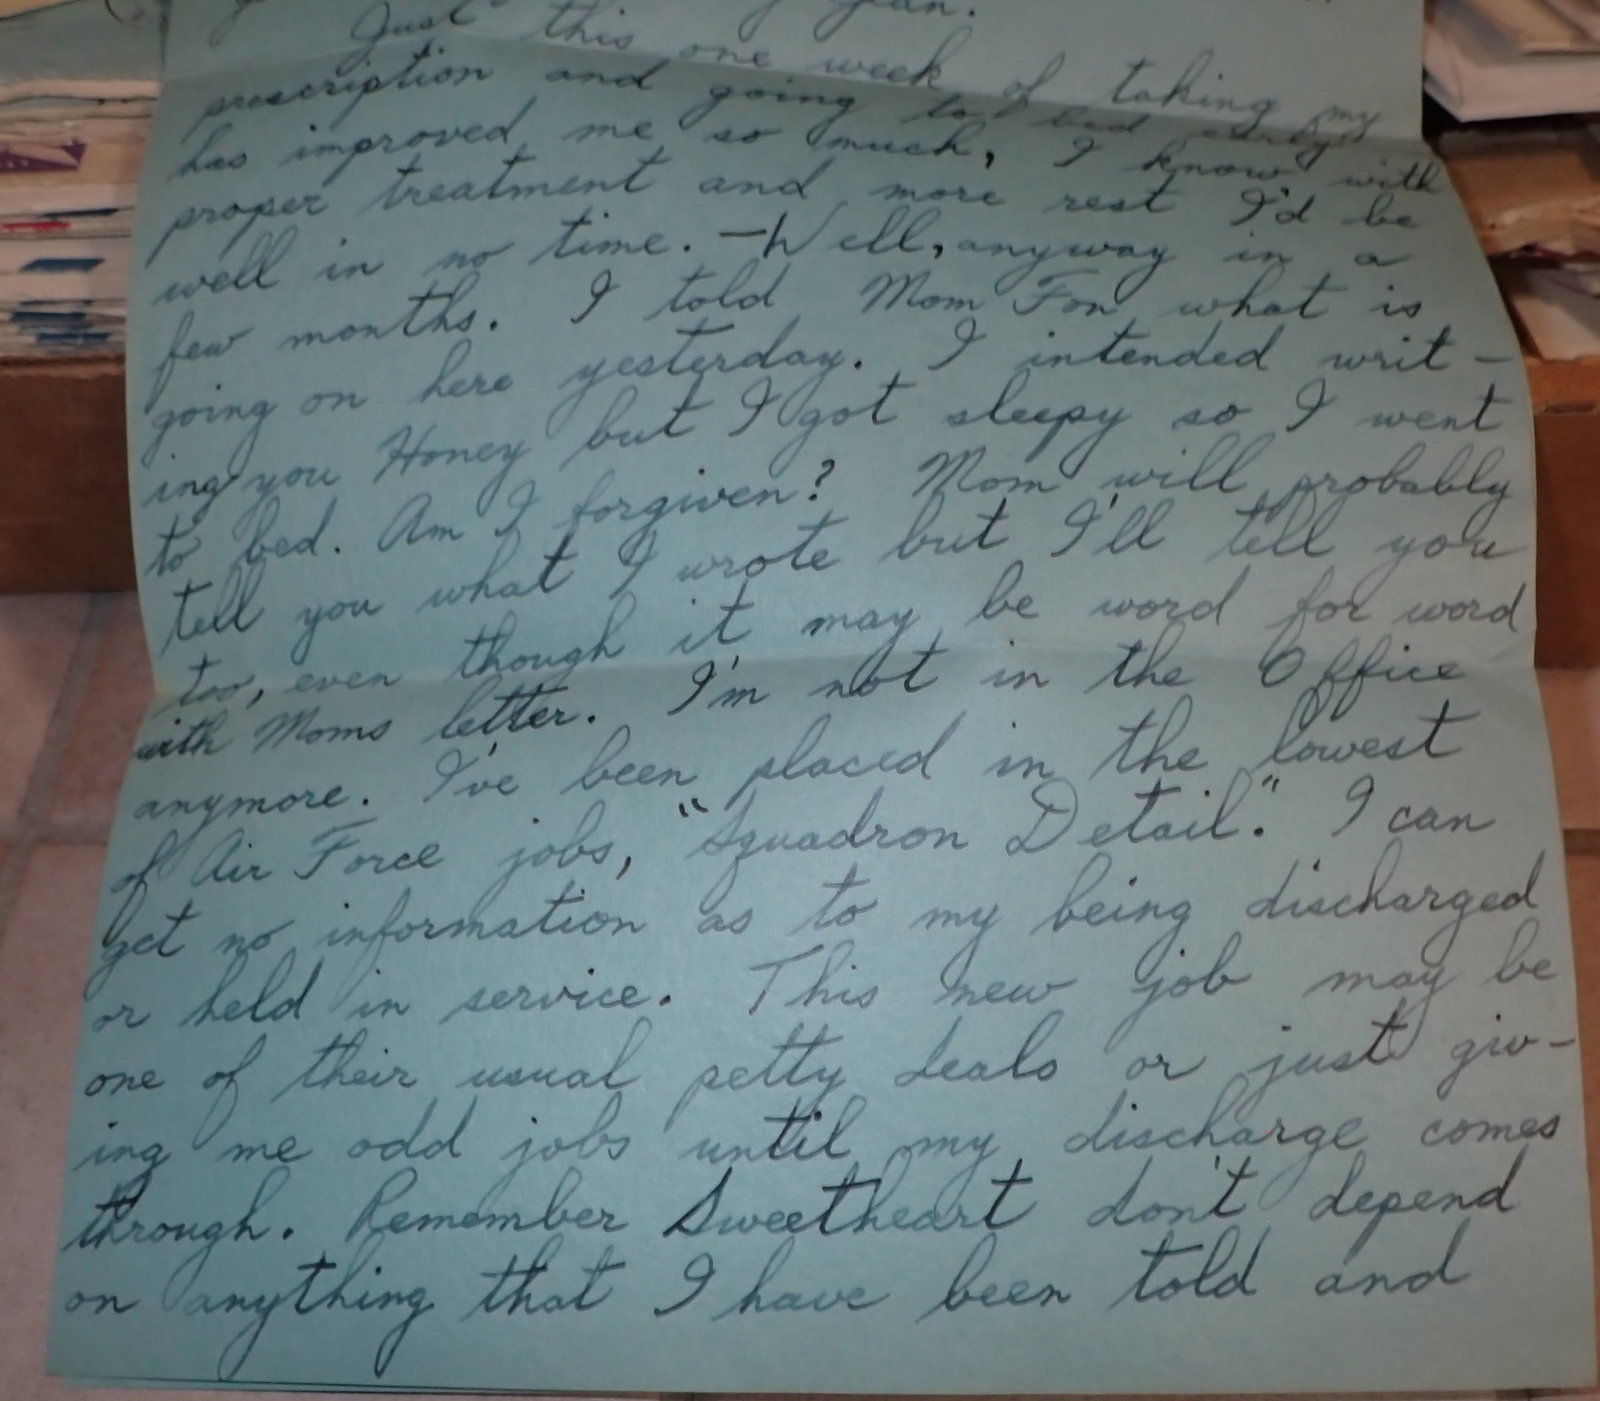 Just this one week of taking my
prescription and going to bed early
has improved me so much, I know with
proper treatment and more rest I'd be
well in no time. — Well, anyway in a
few months. I told Mom Fon what is
going on here yesterday. I intended writ-
ing you Honey but I got sleepy so I went
to bed. Am I forgiven? Mom will probably
tell you what I wrote but I'll tell you
too, even though it may be word for word
with Moms letter. I'm not in the Office
anymore. I've been placed in the lowest
of Air Force jobs, "Squadron Detail." I can
get no information as to my being discharged
or held in service. This new job may be
one of their usual petty deals or just giv-
ing me odd jobs until my discharge comes
through. Remember Sweetheart don't depend
on anything that I have been told and